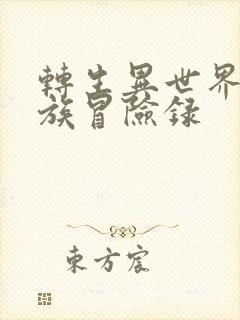 轉生異世界
族冒險錄
東方宸